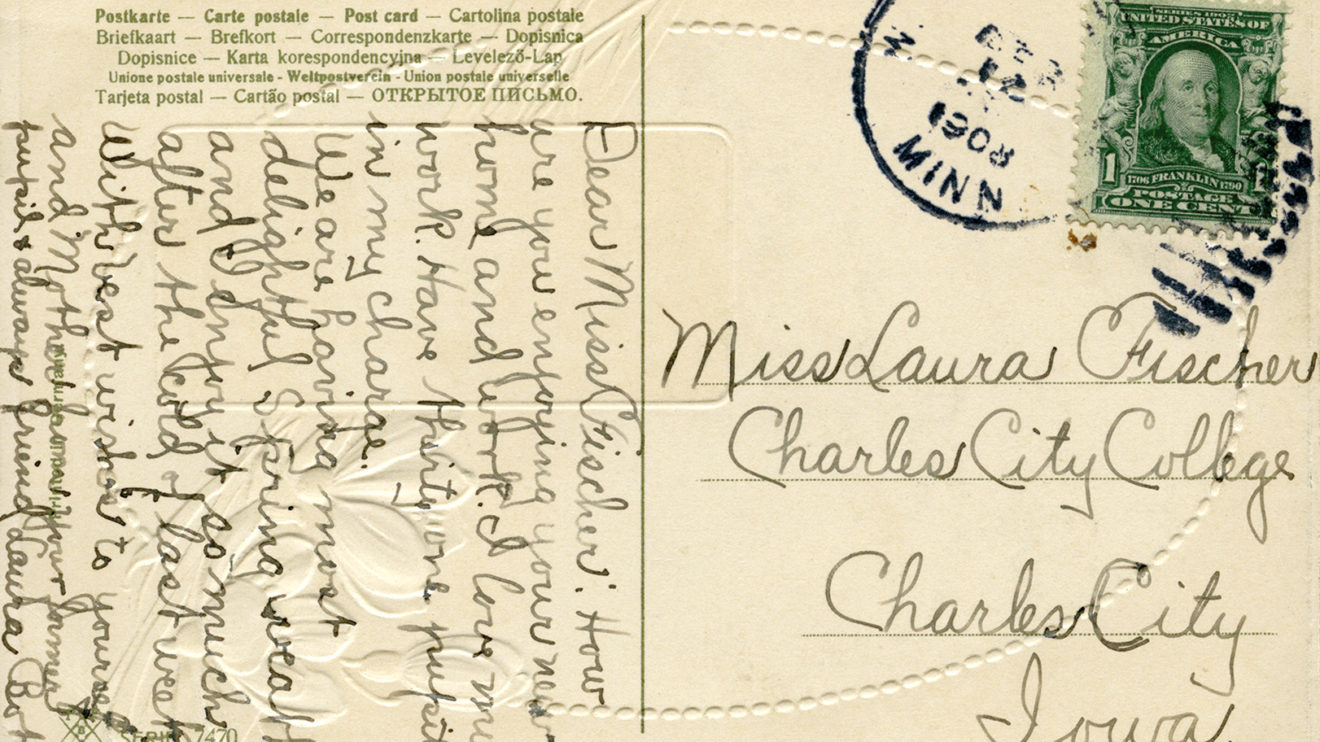 Postkarte — Carte postale — Post card — Cartolina postale
Briefkaart — Brefkort — Correspondenzkarte — Dopisnica
Dopisnice — Karta korespondencyjna — Levelező-Lap
Unione postale universale - Weltpostverein - Union postale universelle
Tarjeta postal — Cartão postal — ОТКРЫТОЕ ПИСЬМО.
Dear Miss Fischer: How
are you enjoying your new
home and work. I love my
work. Have thirty one pupils
in my charge.
We are having most
delightful Spring weath
and I enjoy it so much
after the cold of last week
With best wishes to yourself
and Mother from your former
pupil & always friend Laura
SERIE 7470
MINN
1908
SERIES 1902
UNITED STATES OF
AMERICA
1
1706 FRANKLIN 1790
POSTAGE
ONE CENT
Miss Laura Fischer
Charles City College
Charles City
Iowa.